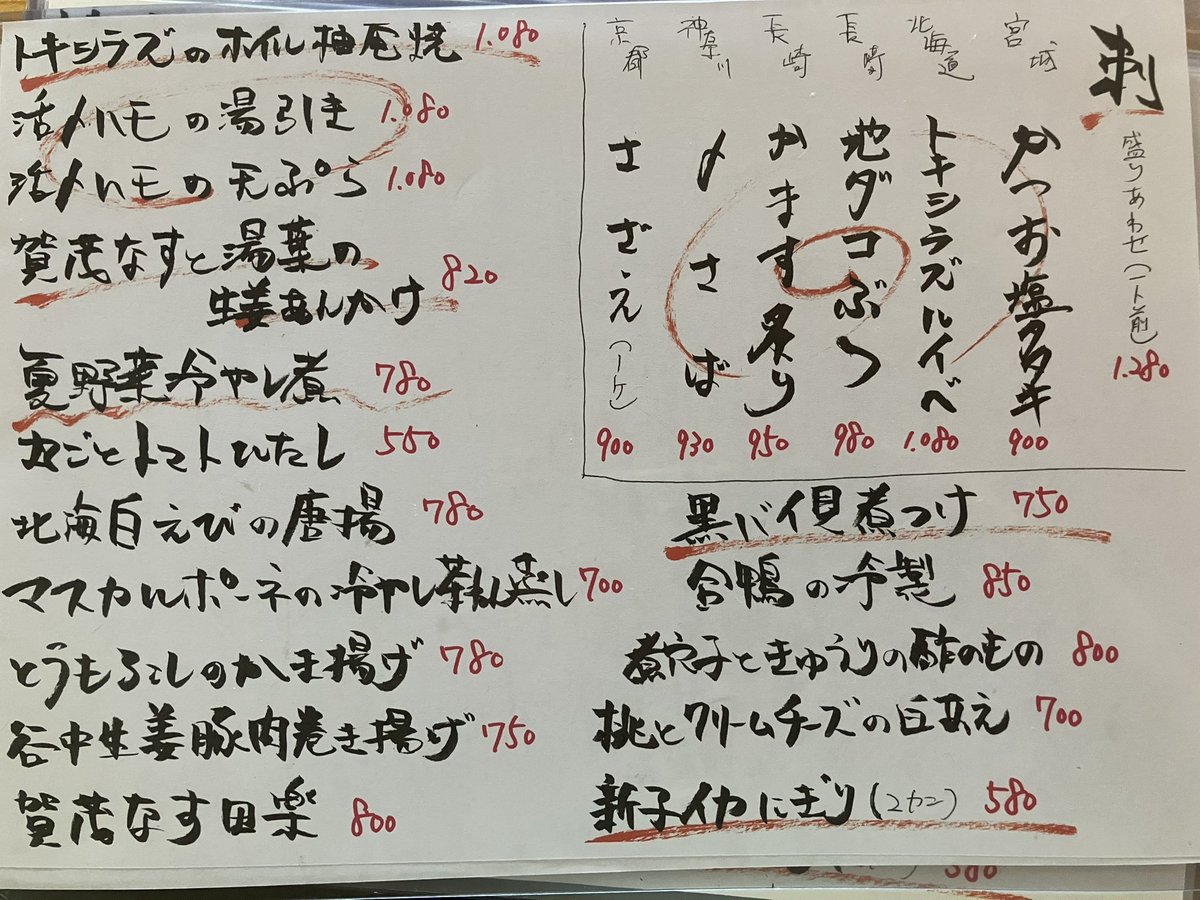 刺
盛りあわせ(一人前) 1.280
宮城 かつお塩タタキ 900
北海道 トキシラズルイベ 1.080
長崎 地ダコぶつ 980
長崎 かます炙り 950
神奈川 〆さば 930
京都 さざえ(一ケ) 900
トキシラズのホイル柚庵焼 1.080
活〆ハモの湯引き 1.080
活〆ハモの天ぷら 1.080
賀茂なすと湯葉の
生姜あんかけ 820
夏野菜冷やし煮 780
丸ごとトマトひたし 550
北海白えびの唐揚 780
マスカルポーネの冷やし茶わん蒸し 700
とうもろこしのかき揚げ 780
谷中生姜豚肉巻き揚げ 750
賀茂なす田楽 800
黒バイ貝煮つけ 750
合鴨の冷製 850
煮穴子ときゅうりの酢のもの 800
桃とクリームチーズの白あえ 700
新子イカにぎり(2カン) 580
580